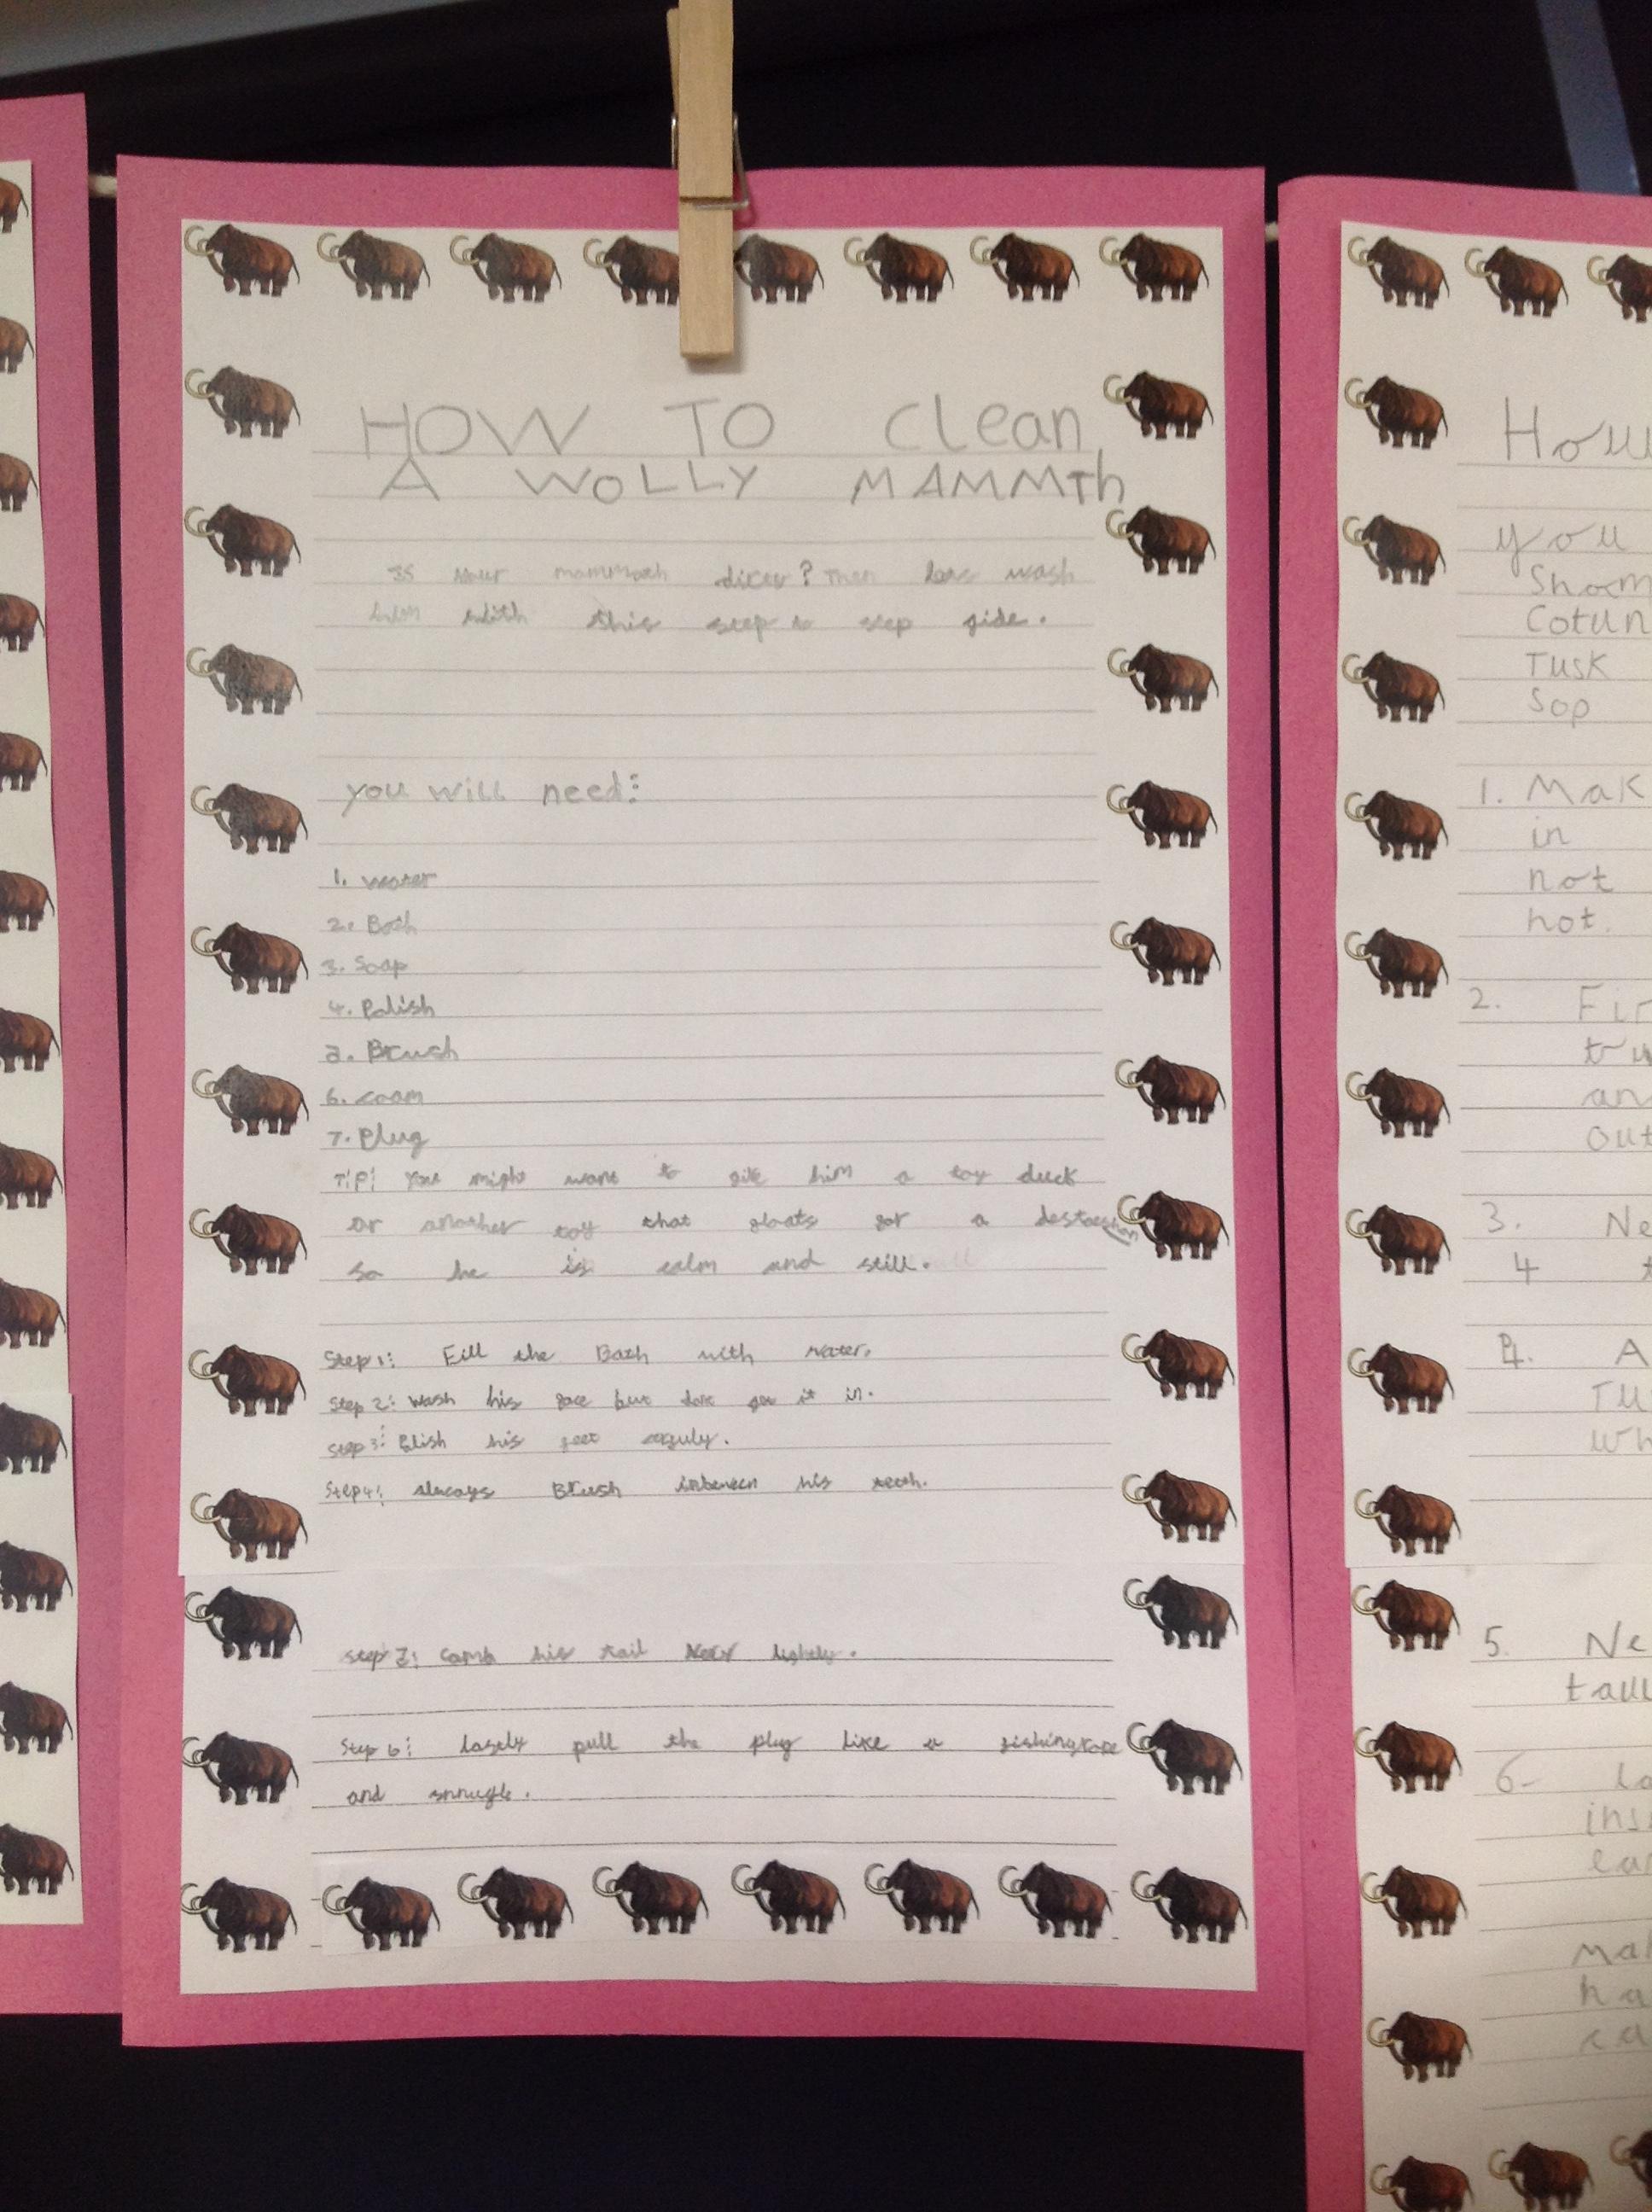 HOW TO Clean
A WOLLY MAMMTh
IS your mammoth ? Then wash
him with this step to step gide.
you will need:
1. water
2. Bath
3. Soap
4. Polish
Brush
6. coam
7. Plug
TIP: You might want to give him a toy duck
or another toy that floats for a
so he is calm and still.
Step 1: Fill the Bath with water.
Step 2: wash his face but dont get it in.
Step 3: Polish his feet
Step 4: always Brush inbeween his teeth.
step comb his tail lightly.
Step 6: lastly pull the plug like a
and snnugle.
How
you
Cotun
Tusk
Sop
1. Mak
in
not
hot.
2. Fir
an
out
3. Ne
4
A
Tu
wh
5. Ne
6-